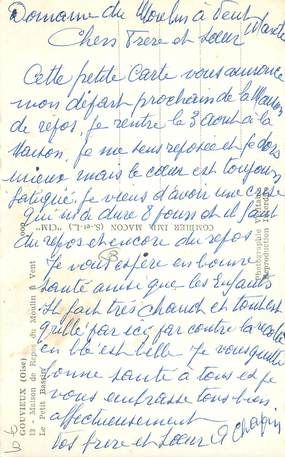 Domaine du Moulin à Vent
Chers Frere et Sœur
Cette petite Carte vous annonce
mon départ prochain de la Maison
de repos, je rentre le 3 Aout à la
Maison, je me sens reposée et je dors
mieux mais le cœur est toujours
fatigué. je viens d'avoir une crise
qui m'a duré 8 jours et il faut
du repos et encore du repos
Je vous espère en bonne
santé ainsi que les Enfants
il fait très chaud et tout est
grillé par ici par contre la recolte
en blé est belle. Je vous quitte
bonne santé à tous et je
vous embrasse tous bien
affectueusement
Vos frere et Sœur
GOUVIEUX (Oise)
12 - Maison de Repos du Moulin à Vent
Le Petit Bassin
COMBIER IMP. MACON (S.-et-L.) "CIM"
Photographie Véritable
Reproduction Interdite